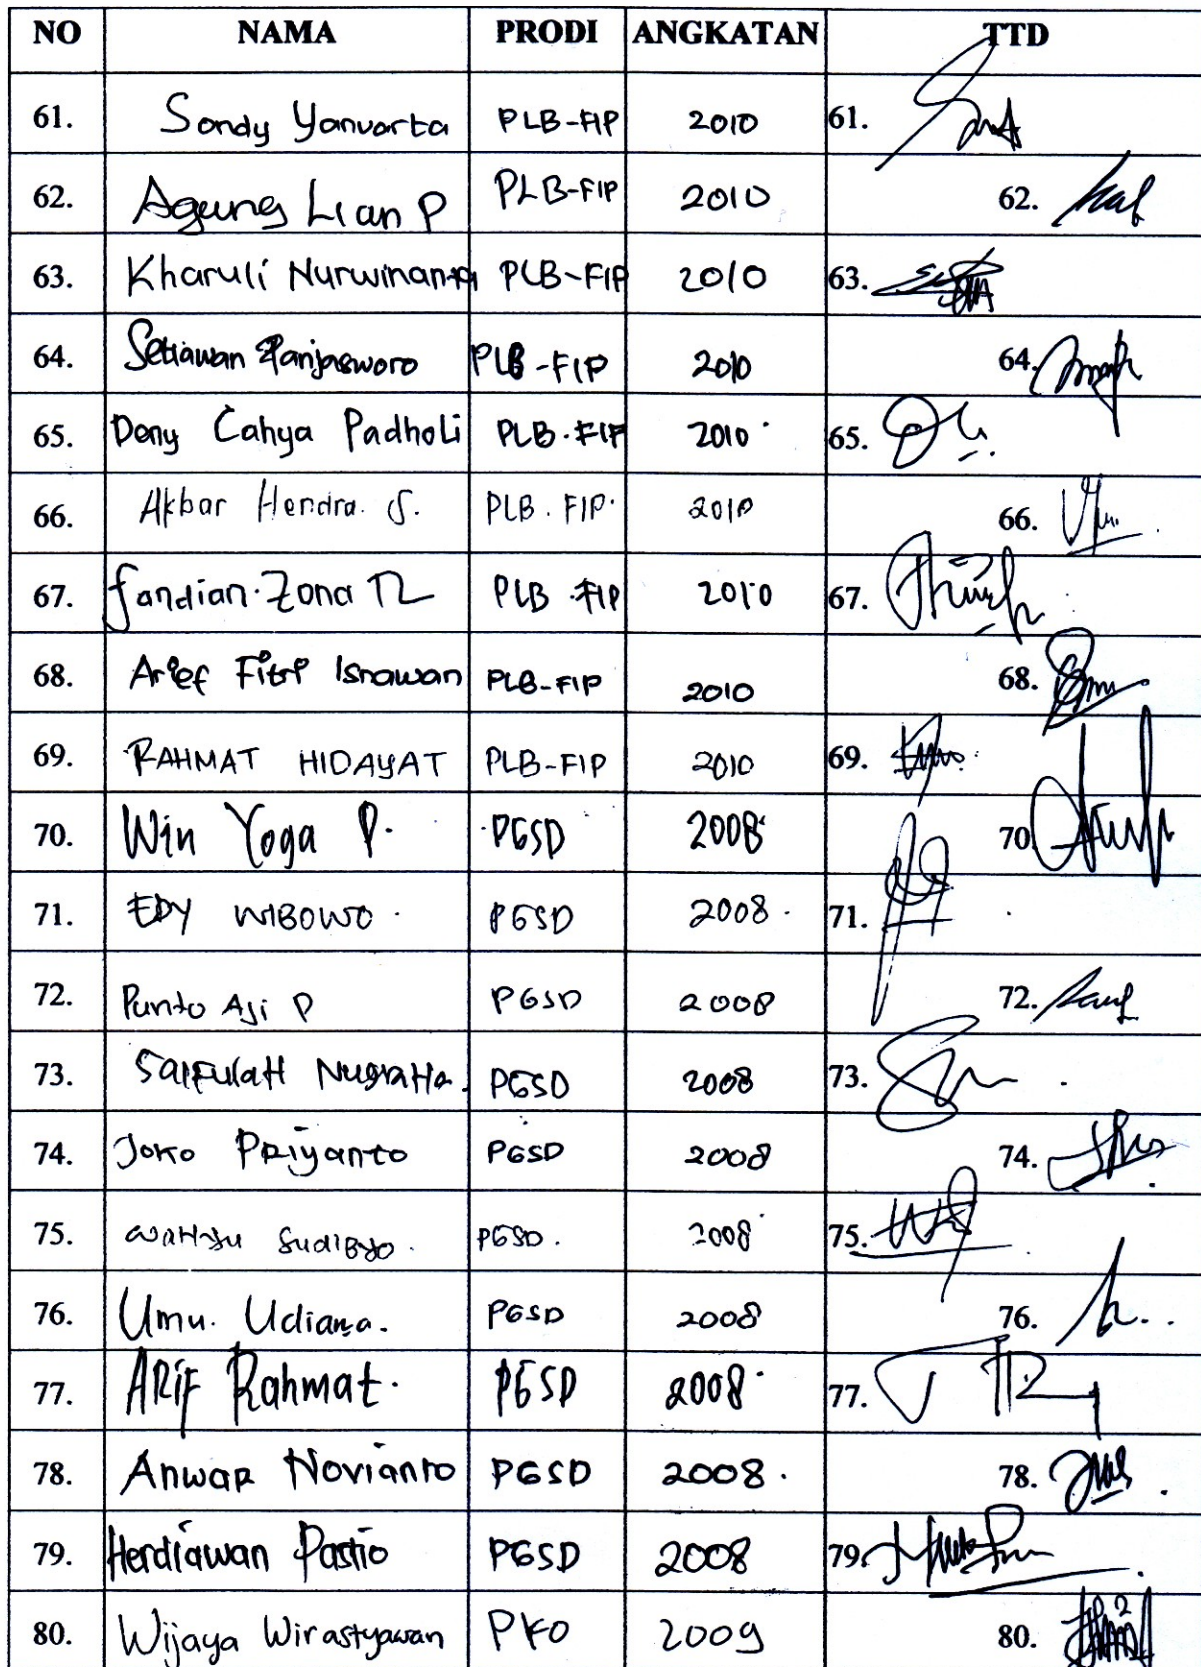 NO NAMA PRODI ANGKATAN TTD
61. Sondy Yanuarta PLB-FIP 2010 61.
62. Agung Lian P PLB-FIP 2010 62.
63. Kharuli Nurwinanta PLB-FIP 2010 63.
64. Setiawan Panjasworo PLB-FIP 2010 64.
65. Deny Cahya Padholi PLB.FIP 2010 65.
66. Akbar Hendra. S. PLB. FIP. 2010 66.
67. fandian.Zona PLB.FIP 2010 67.
68. Arief Fitri Isnawan PLB-FIP 2010 68.
69. RAHMAT HIDAYAT PLB-FIP 2010 69.
70. Win Yoga P. PGSD 2008 70.
71. EDY WIBOWO. PGSD 2008. 71.
72. Punto Aji P PGSD 2008 72.
73. SAIFULAH NugraHa. PGSD 2008 73.
74. Joko PRiyanto PGSD 2008 74.
75. WAHYu SudiByo. PGSD. 2008 75.
76. Umu. Udiana. PGSD 2008 76.
77. ARIF Rahmat. PGSD 2008. 77.
78. AnwaR Novianto PGSD 2008. 78.
79. Herdiawan Pastio PGSD 2008 79.
80. Wijaya Wirastyawan PKO 2009 80.